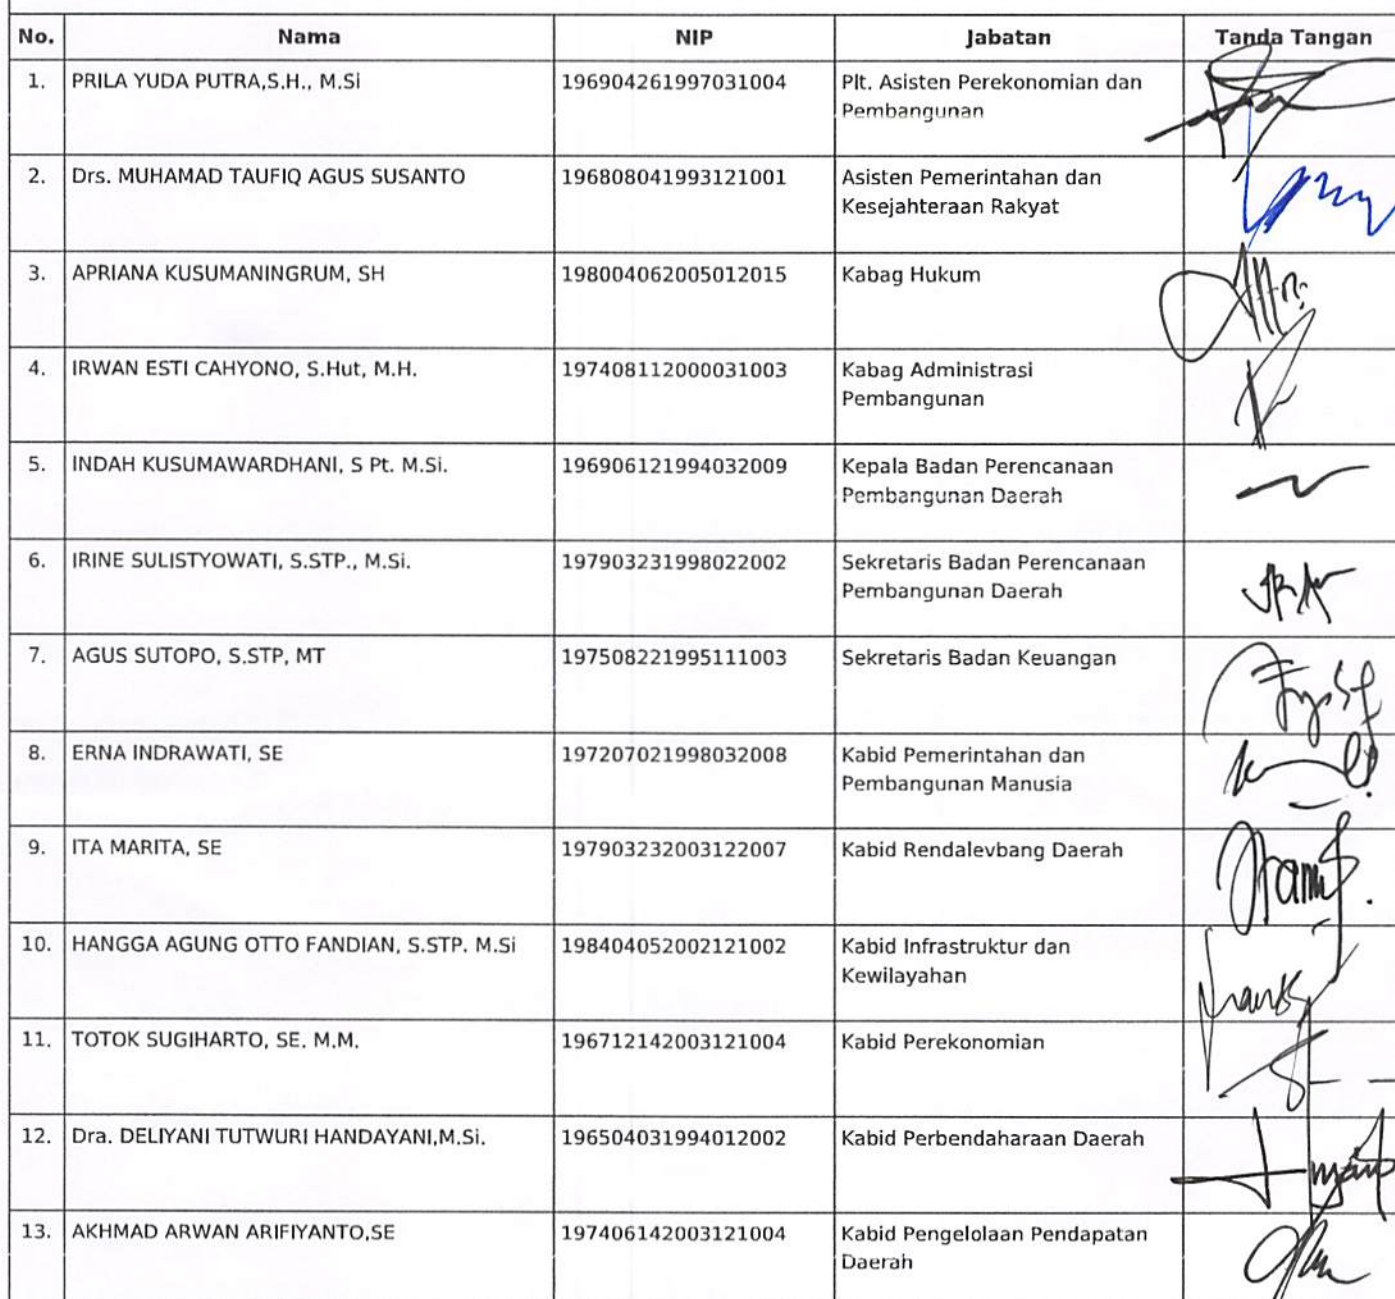 No. Nama NIP Jabatan Tanda Tangan
1. PRILA YUDA PUTRA,S.H., M.Si 196904261997031004 Plt. Asisten Perekonomian dan
Pembangunan
2. Drs. MUHAMAD TAUFIQ AGUS SUSANTO 196808041993121001 Asisten Pemerintahan dan
Kesejahteraan Rakyat
3. APRIANA KUSUMANINGRUM, SH 198004062005012015 Kabag Hukum
4. IRWAN ESTI CAHYONO, S.Hut, M.H. 197408112000031003 Kabag Administrasi
Pembangunan
5. INDAH KUSUMAWARDHANI, S Pt. M.Si. 196906121994032009 Kepala Badan Perencanaan
Pembangunan Daerah
6. IRINE SULISTYOWATI, S.STP., M.Si. 197903231998022002 Sekretaris Badan Perencanaan
Pembangunan Daerah
7. AGUS SUTOPO, S.STP, MT 197508221995111003 Sekretaris Badan Keuangan
8. ERNA INDRAWATI, SE 197207021998032008 Kabid Pemerintahan dan
Pembangunan Manusia
9. ITA MARITA, SE 197903232003122007 Kabid Rendalevbang Daerah
10. HANGGA AGUNG OTTO FANDIAN, S.STP. M.Si 198404052002121002 Kabid Infrastruktur dan
Kewilayahan
11. TOTOK SUGIHARTO, SE. M.M. 196712142003121004 Kabid Perekonomian
12. Dra. DELIYANI TUTWURI HANDAYANI,M.Si. 196504031994012002 Kabid Perbendaharaan Daerah
13. AKHMAD ARWAN ARIFIYANTO,SE 197406142003121004 Kabid Pengelolaan Pendapatan
Daerah